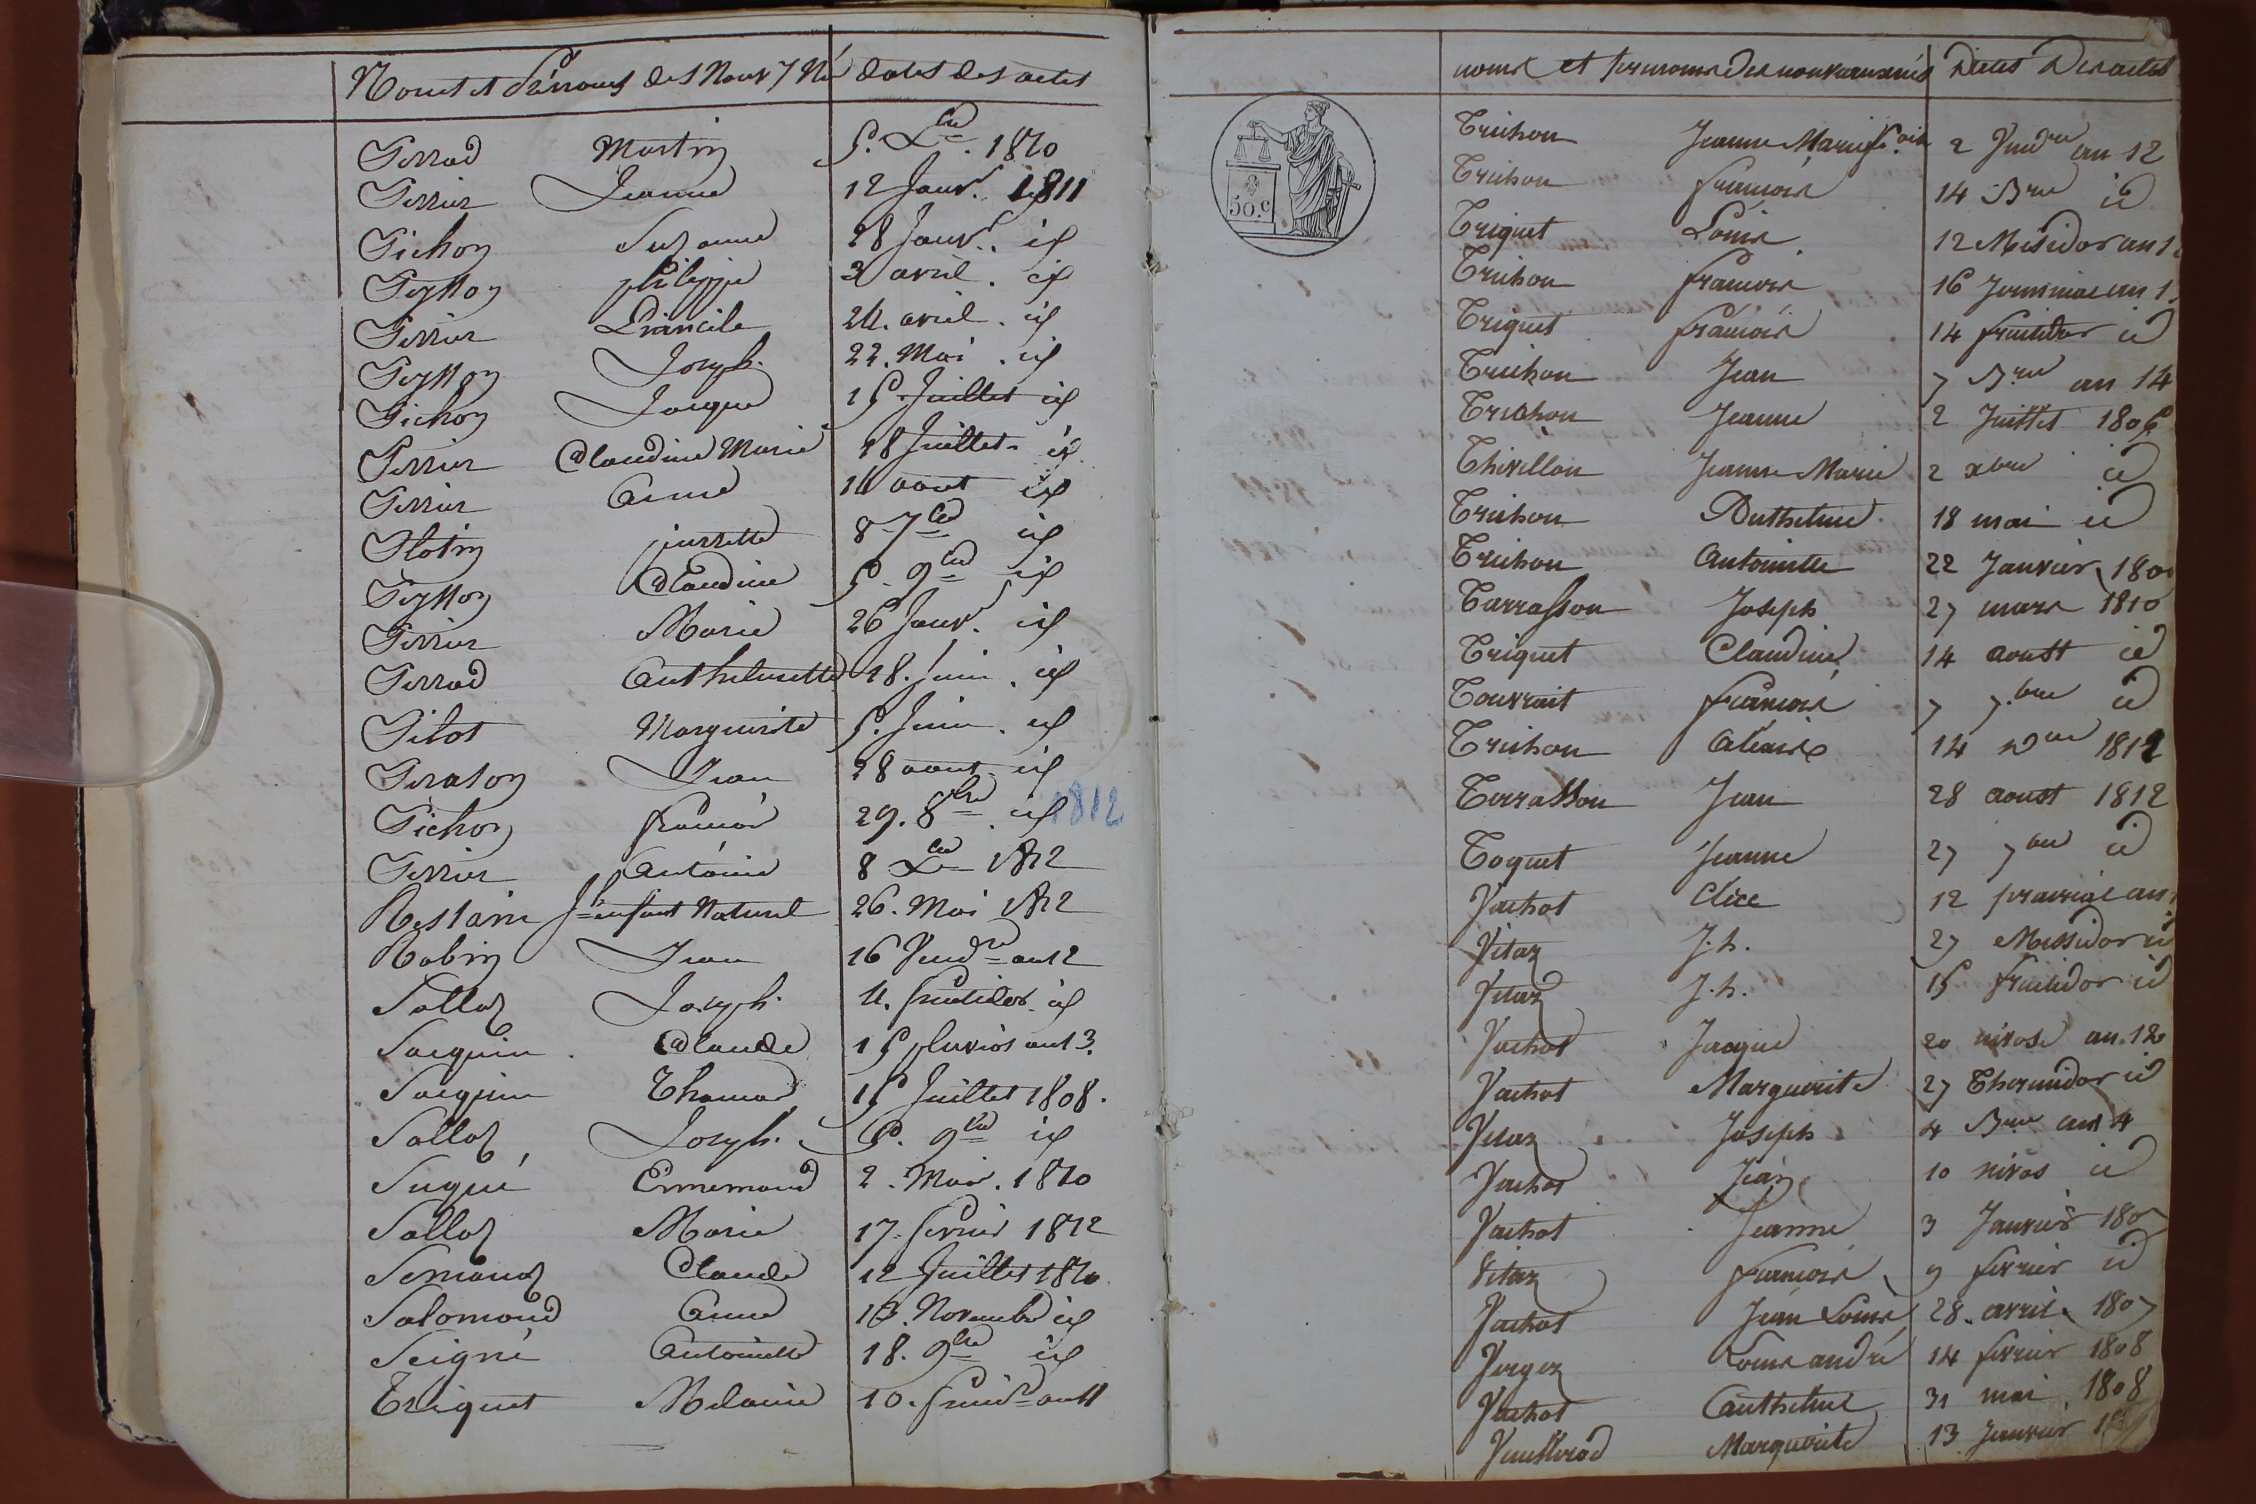 Noms et Prénoms des Nouv. Né dates des actes
Perrad Martin 5. Xbre 1810
Perrier Jeanne 12 Janvr. 1811
Pichon Suzanne 28 Janvr. id
Peysson philippe 3 avril. id
Perrier 24. avril. id
Peysson Joseph. 22. Mai. id
Pichon Jacque 15. Juillet id
Perrier Claudine Marie 18 Juillet. id
Perrier Anne 14 aout id
Plotin pierrette 8 7bre id
Peysson Claudine 5. 9bre id
Perrier Marie 26 Janvr. id
Perrad Anthelmette 18. Juin. id
Pilot Marguerite 5. Juin. id
Peraton Jean 28 aout id
Pichon francois 29. 8bre. id 1812
Perrier Antoine 8 Xbre 1812
Restain Jh enfant Naturel 26. Mai 1812
Robin Jean 16 Vendre an 12
Pollod Joseph. 4. fructidor. id
Saequin Claude 15 pluvios an 13.
Saequin Thomas 15 Juillet 1808.
Sallod Joseph. 5. 9bre id
Sugué Ennemond 2. Mai. 1810
Sallod Marie 17. fevrier 1812
Semanod Claude 12 Juillet 1810.
Salomond Anne 13. Novembre id
Seigné Antoinette 18. 9bre id
Triquet Melanie 10. an 11
noms et pernoms des nouveaunés Dates Des actes
50.c
Trichon Jeanne Marie fcoise 2 Vendre an 12
Trichon francois 14 Bre id
Triquet Louis 12 Messidor an 1
Trichon francois 16 Jerminal an 1
Triquet francois 14 fructidor id
Trichon Jean 7 Bre an 14
Trichon Jeanne 2 Juillet 1806
Thivillon Jeanne Marie 2 xbre id
Trichon Anthelme 18 mai id
Trichon Antoinette 22 Janvier 180
Tarrasson Joseph 27 mars 1810
Triquet Claudine 14 aoust id
Tourrait francois 7 7.bre id
Trichon 14 1812
Terrasson Jean 28 aoust 1812
Toquet Jeanne 27 7bre id
Vachot Clére 12 prairial an
Vitaz J.h. 27 Messidor id
Vitaz J.h. 15 fructidor id
Vachot Jacque 20 nivose an. 12
Vachot Marguerite 27 Thermidor id
Vitaz Joseph 4 Bre an 14
Vachot Jean 10 nivos id
Vachot Jeanne 3 Janvier 1807
Vitaz francois 9 fevrier id
Vachot Jean Louis 28. avril. 1807
Verger Louis andré 14 fevrier 1808
Vachot Anthelme 31 mai 1808
Marguerite 13 Janvier